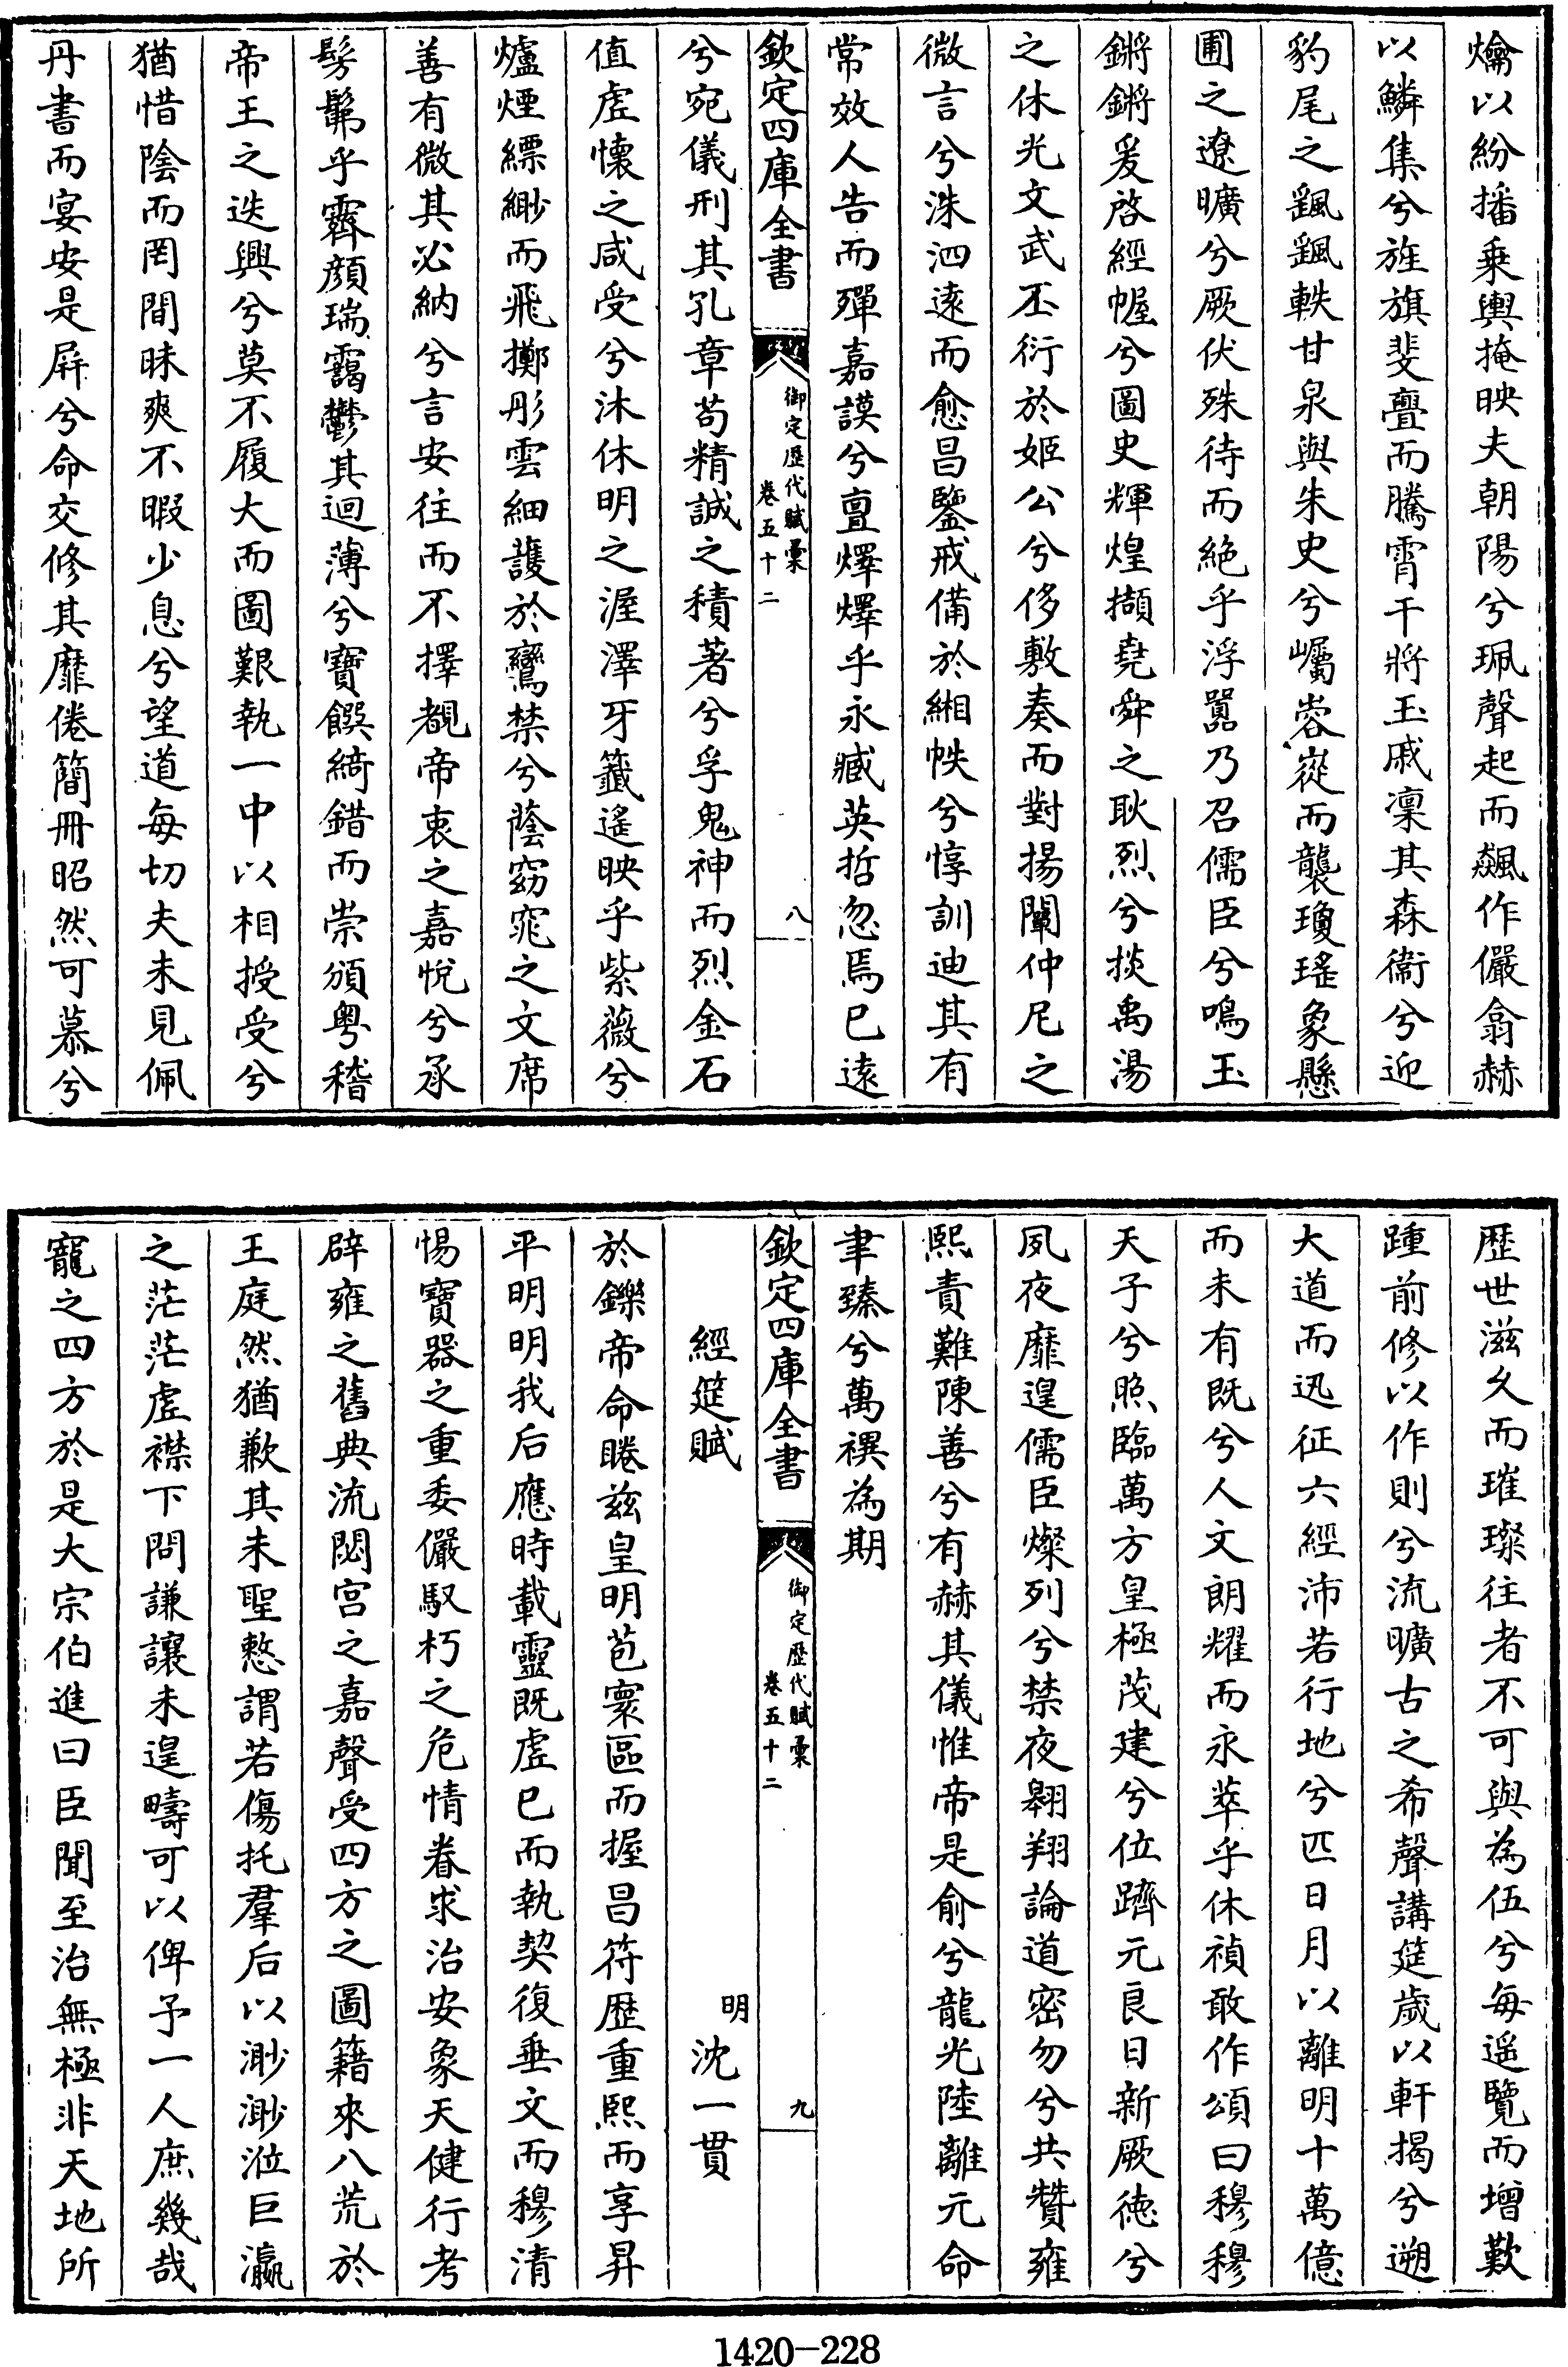 爚以紛播乗輿掩映夫朝陽兮珮聲起而飆作儼翕赫
以鱗集兮旌旗斐亹而騰霄干將玉戚凜其森衞兮迎
豹尾之颽颽軼甘泉與朱史兮巁嵤嵸而襲瓊瑤象懸
圃之遼曠兮厥伏殊待而絶乎浮囂乃召儒臣兮鳴玉
鏘鏘爰啓經幄兮圖史輝煌擷堯舜之耿烈兮掞禹湯
之休光文武丕衍於姬公兮侈敷奏而對揚闡仲尼之
微言兮洙泗遠而愈昌鑒戒備於緗帙兮惇訓迪其有
常效人告而殫嘉謨兮亶燡燡乎永臧英哲忽焉已遠
欽定四庫全書
御定歴代賦彚
卷五十二
八
兮宛儀刑其孔章苟精誠之積著兮孚鬼神而烈金石
值虚懷之咸受兮沐休明之渥澤牙籤遙映乎紫薇兮
爐煙縹緲而飛擲彤雲細護於鸞禁兮蔭窈窕之文席
善有微其必納兮言安往而不擇覩帝衷之嘉悅兮承
髣髴乎霽顔瑞靄鬱其迴薄兮寶饌綺錯而崇頒粤稽
帝王之迭興兮莫不履大而圖艱執一中以相授受兮
猶惜陰而罔間昧爽不暇少息兮望道每切夫未見佩
丹書而宴安是屏兮命交修其靡倦簡冊昭然可慕兮
歴世滋久而璀璨往者不可與為伍兮每遥覽而增歎
踵前修以作則兮流曠古之希聲講筵歲以軒揭兮遡
大道而迅征六經沛若行地兮匹日月以離明十萬億
而未有既兮人文朗耀而永萃乎休禎敢作頌曰穆穆
天子兮照臨萬方皇極茂建兮位躋元良日新厥徳兮
夙夜靡遑儒臣燦列兮禁夜翱翔論道密勿兮共贊雍
熙責難陳善兮有赫其儀惟帝是俞兮龍光陸離元命
聿臻兮萬禩為期
欽定四庫全書
御定歴代賦彚
卷五十二
九
經筵賦
明
沈一貫
於鑠帝命睠兹皇明苞寰區而握昌符歴重熙而享昇
平明明我后應時載靈既虚已而執契復垂文而穆清
惕寶器之重委儼馭朽之危情眷求治安象天健行考
辟雍之舊典流閟宫之嘉聲受四方之圖籍來八荒於
王庭然猶歉其未聖慗謂若傷托羣后以渺渺涖巨瀛
之茫茫虚襟下問謙讓未遑疇可以俾予一人庶幾哉
寵之四方於是大宗伯進曰臣聞至治無極非天地所
1420-228